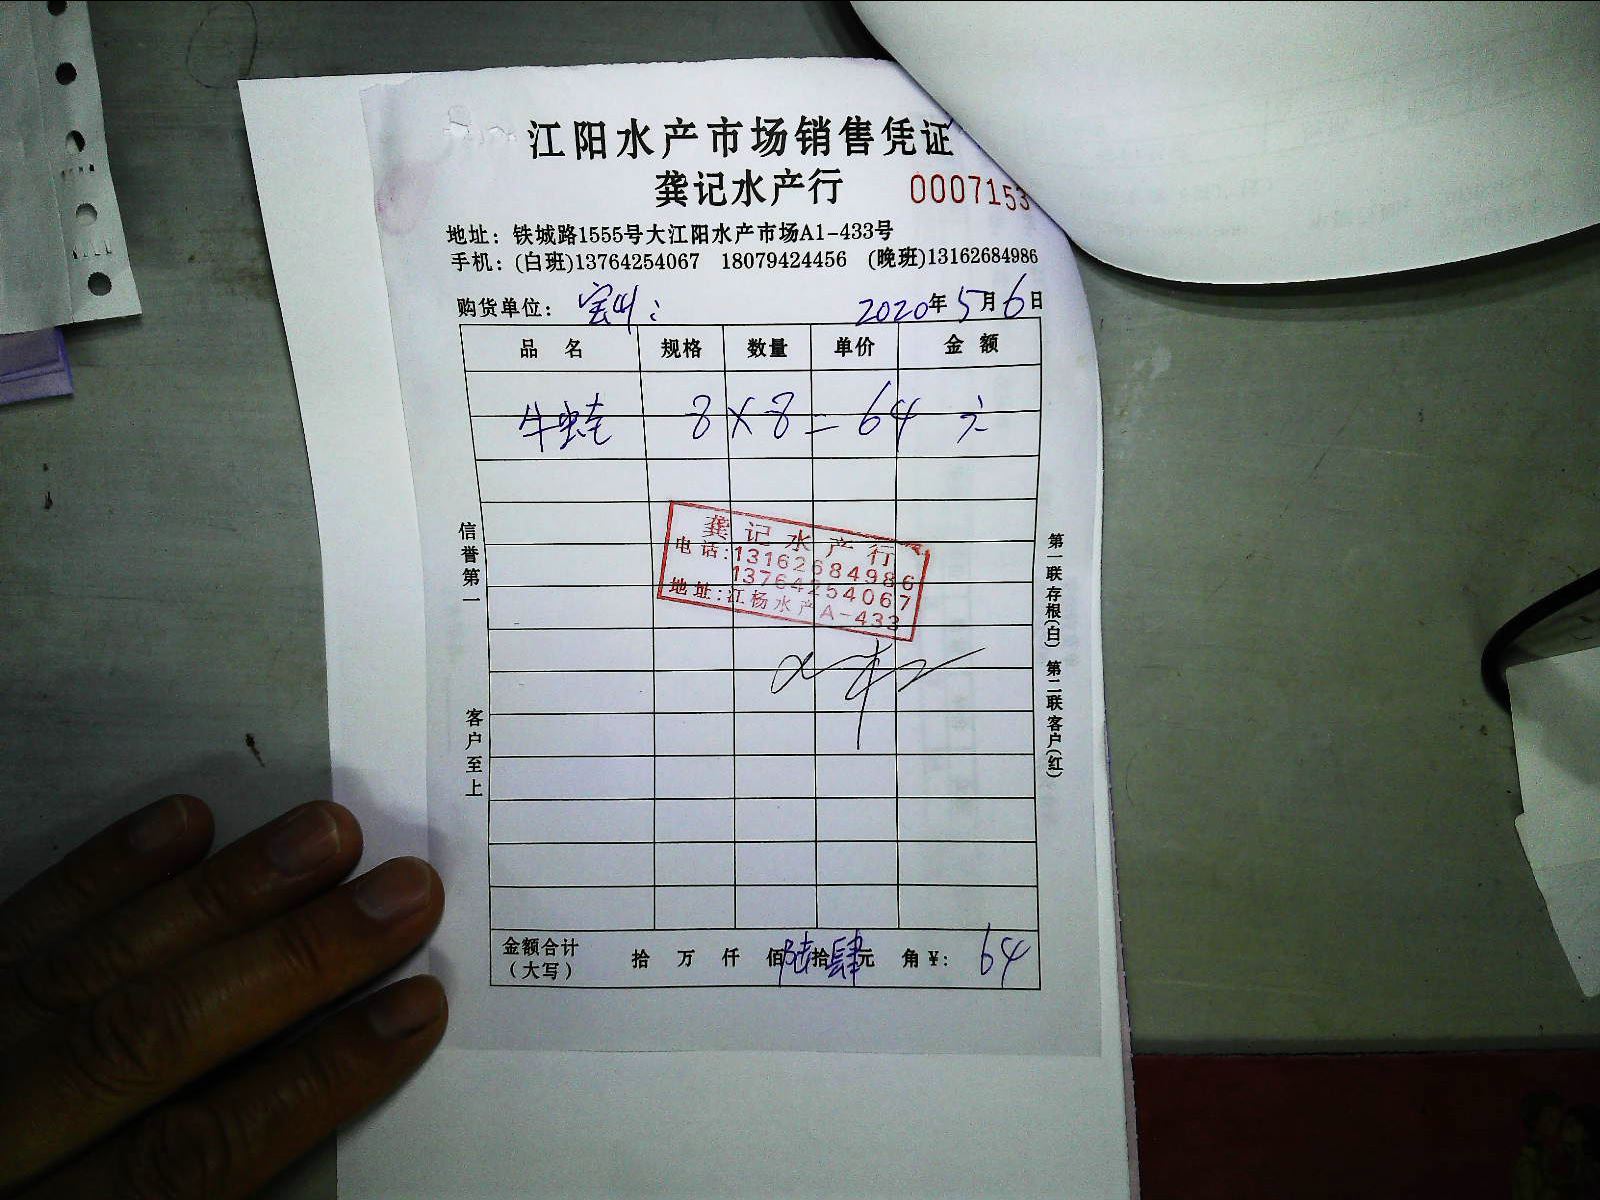 江阳水产市场销售凭证
龚记水产行 0007153
地址：铁城路1555号大江阳水产市场A1-433号
手机：(白班)13764254067 18079424456 (晚班)13162684986
购货单位： 2020年5月6日
品名 规格 数量 单价 金额
牛蛙 8×8=64元
龚记水产行
电话:13162684986
13764254067
地址:江杨水产A-433
信誉第一 客户至上
第一联存根(白) 第二联客户(红)
金额合计（大写） 拾 万 仟 佰陆拾肆元 角 ¥: 64